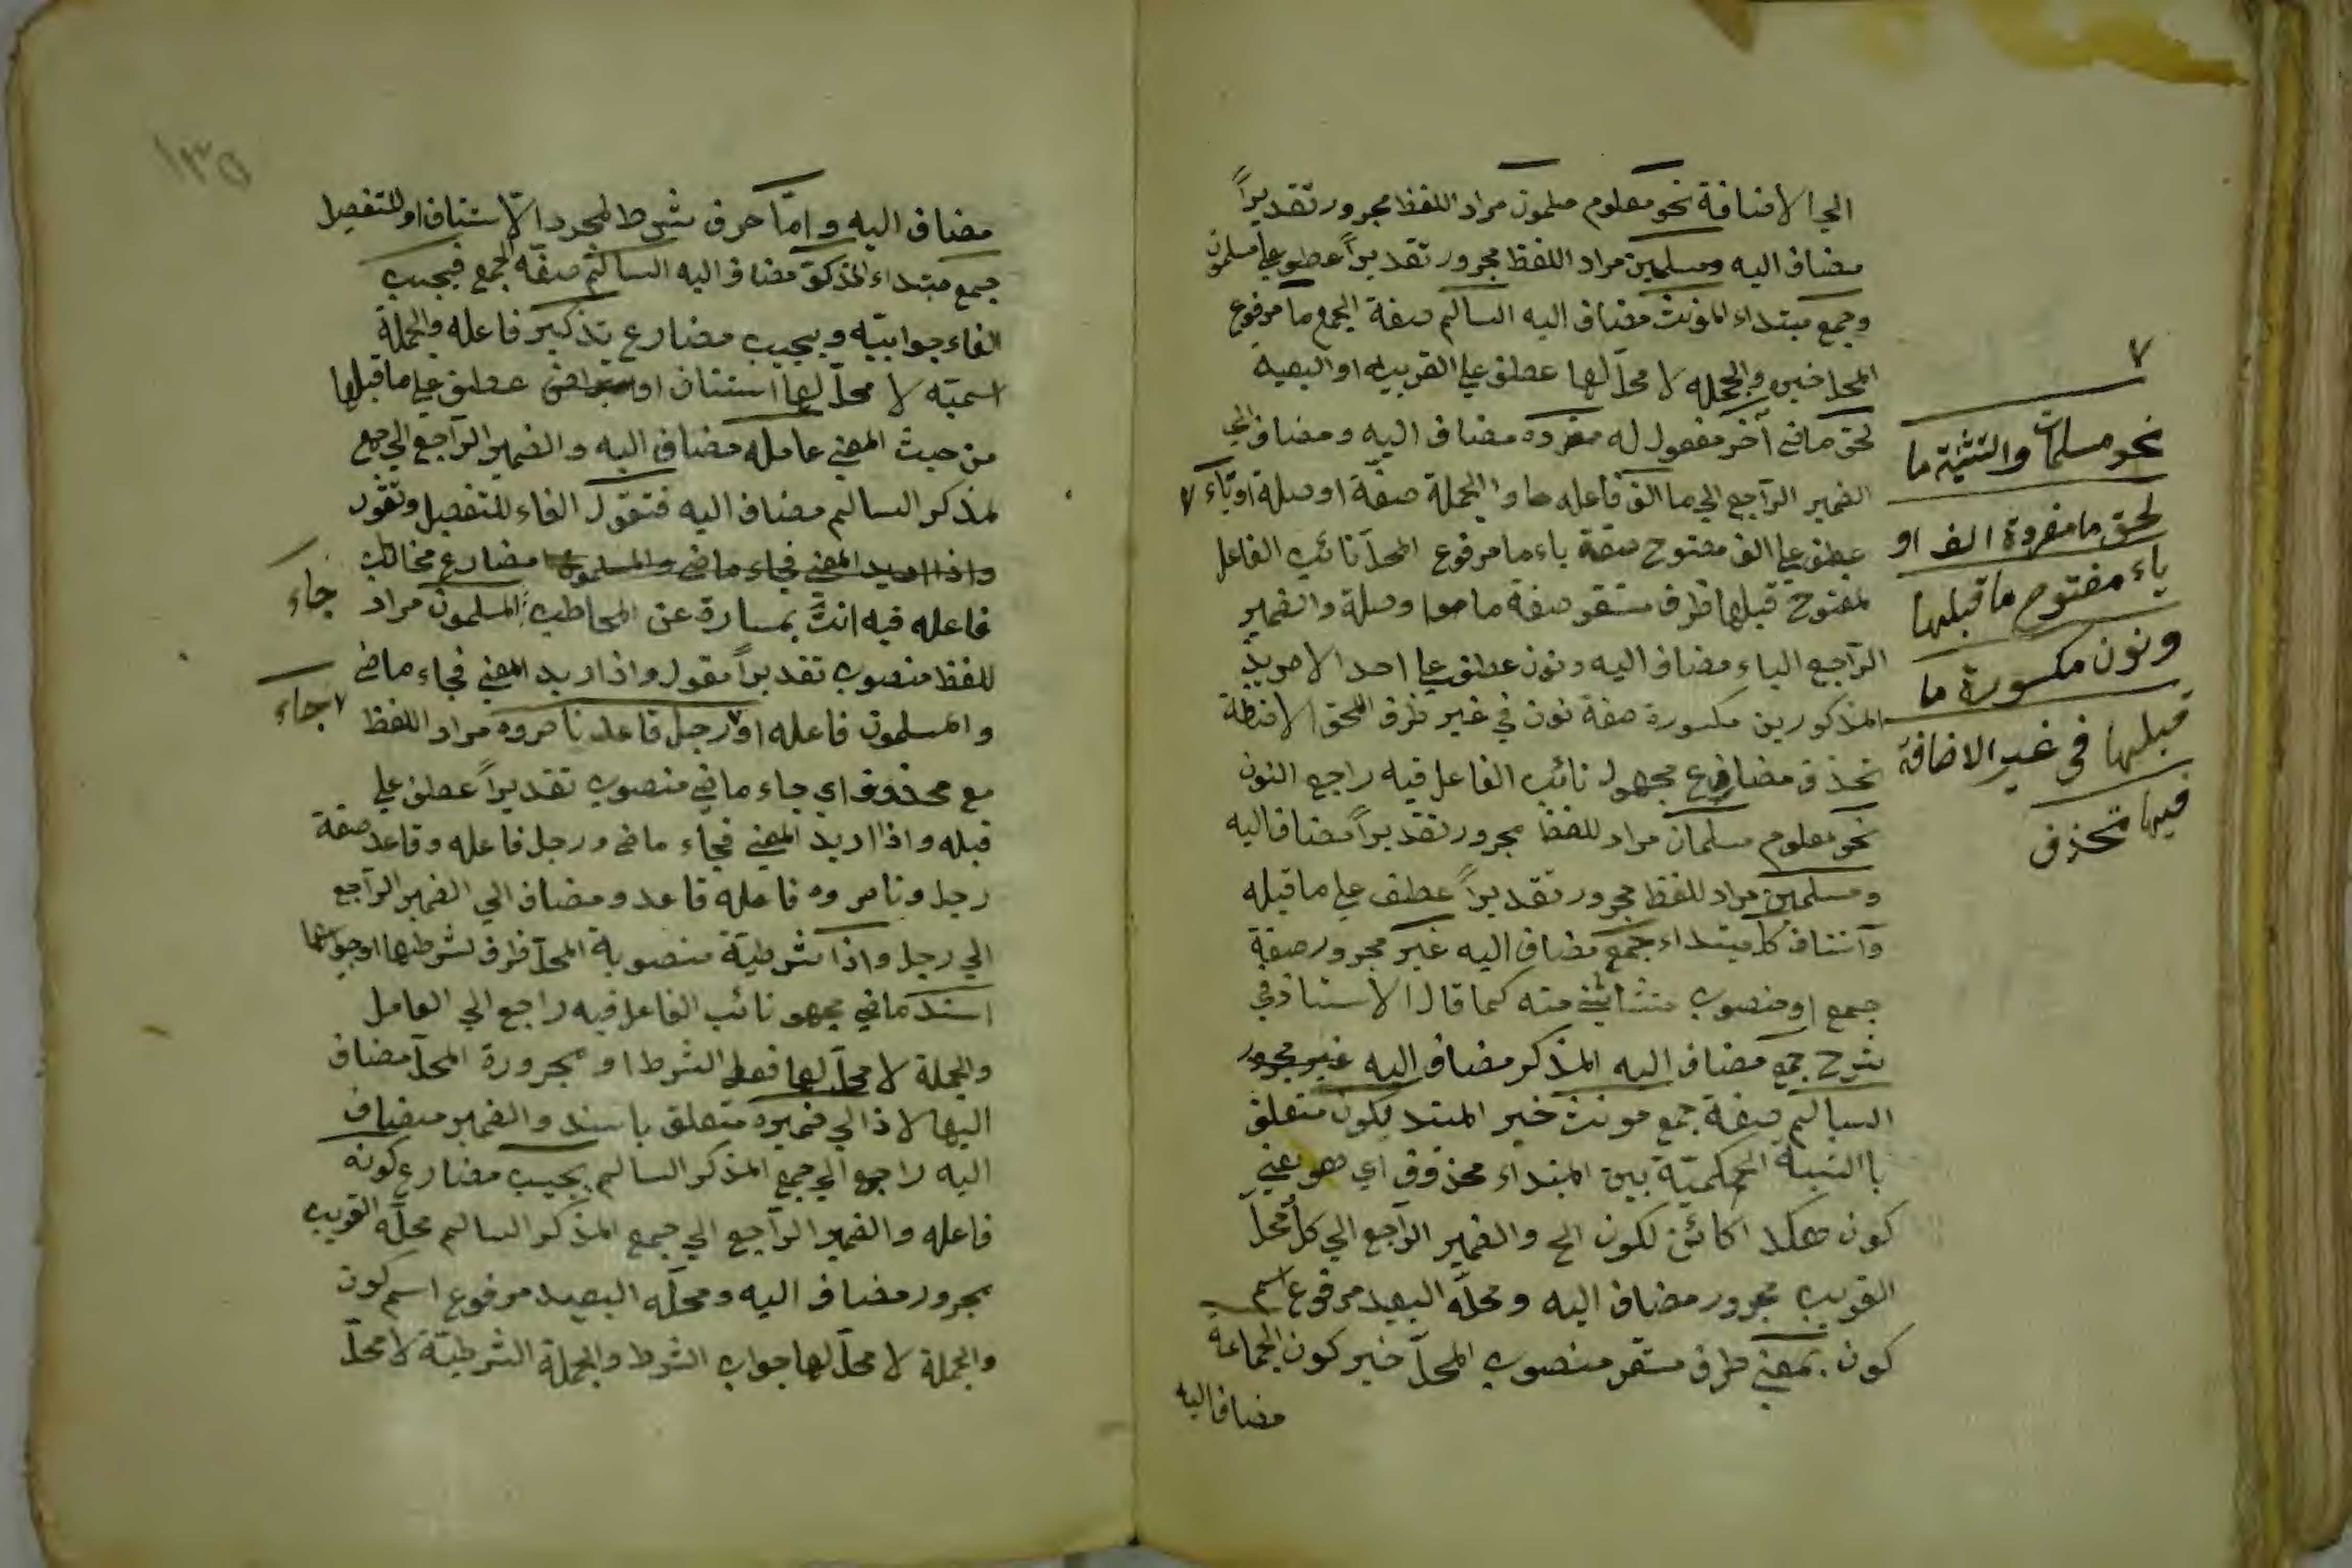 الي الاضافة نحو معلوم مسلمون مراد اللفظ مجرور تقديراً
مضاف اليه ومسلمين مراد اللفظ مجرور تقديراً عطف علي مسلمون
وجمع مبتداء المؤنث مضاف اليه السالم صفة الجمع ما مرفوع
المحل خبره والجمله لا محلّ لها عطف علي القريبه او البعيد
لحق ماضي آخر مفعول له مفرده مضاف اليه ومضاف الي
الضمير الرّاجع الي ما الف فاعله ما والجملة صفة او صلة او تاء ٧
عطف علي الف مفتوح صفة ياء ما مرفوع المحلّ نائب الفاعل
لمفتوح قبلها ظرف مستقر صفة ما او صلة والضمير
الرّاجع الياء مضاف اليه ونون عطف علي احد الامرين
المذكورين مكسورة صفة نون في غير ظرف لحق الاضافة
تحذف مضارع مجهول نائب الفاعل فيه راجع النون
نحو معلوم مسلمان مراد للفظ مجرور تقديراً مضاف اليه
ومسلمين مراد للفظ مجرور تقديراً عطف علي ما قبله
كل مبتداء جمع مضاف اليه غير مجرور صفة
جمع او منصوب مستثني منه كما قال الاستاذ في
شرح جمع مضاف اليه المذكر مضاف اليه غير مجرور
السالم صفة جمع مونث خبر المبتد يكون متعلق
باالنسبة الحكميّة بين المبتداء محذوف اي هو يعني
كون هكذا كائن لكون الخ والضمير الرّاجع الي كل محلّ
القريب مجرور مضاف اليه ومحلّه البعيد مرفوع اسم
كون بمعني ظرف مستقر منصوب المحلّ خبر كون الجماعة
مضاف اليه
٧
نحو مسلمات والتثنية ما
لحق ما مفرده الف او
ياء مفتوح ما قبلها
ونون مكسورة ما
قبلها في غير الاضافة
فيها تحذف
١٣٥
مضاف اليه وامّا حرف شرط لمجرد الاّستئناف او للتفصيل
جمع مبتداء المذكر مضاف اليه السالم صفة الجمع فيجب
الفاء جوابيّه ويجب مضارع بتذكير فاعله والجملة
اسميّه لا محلّ لها استئناف او عطف علي ما قبلها
من حيث المعني عامله مضاف اليه والضمير الرّاجع الي جمع
لمذكر السالم مضاف اليه فتقول الفاء للتفصيل وتقول
واذا اريد المعني فجاء ماضي والمسلمون مضارع مخاطب
فاعله فيه انت عبارة عن المخاطب المسلمون مراد جاء
للفظ منصوب تقديراً مقول واذا اريد المعني فجاء ماضي
والمسلمون فاعله او ٧ رجل قاعد ناصروه مراد اللفظ ٧ جاء
مع محذوف اي جاء ماضي منصوب تقديراً عطف علي
قبله واذا اريد المعني فجاء ماضي ورجل فاعله وقاعد صفة
رجل وناصروه فاعله قاعد ومضاف الي الضمير الرّاجع
الي رجل واذا شرطيّة منصوبة المحلّ ظرف لشرطها او جوابها
اسند ماضي مجهو نائب الفاعل فيه راجع الي العامل
والجملة لا محلّ لها فعل الشرط او مجرورة المحلّ مضاف
اليها لاذا الي ضميره متعلق باسند والضمير مضاف
اليه راجع الي جمع المذكر السالم يجب مضارع كونه
فاعله والضمير الرّاجع الي جمع المذكر السالم محلّه القريب
مجرور مضاف اليه ومحلّه البعيد مرفوع اسم كون
والجملة لا محلّ لها جواب الشرط والجملة الشرطيّة لا محلّ